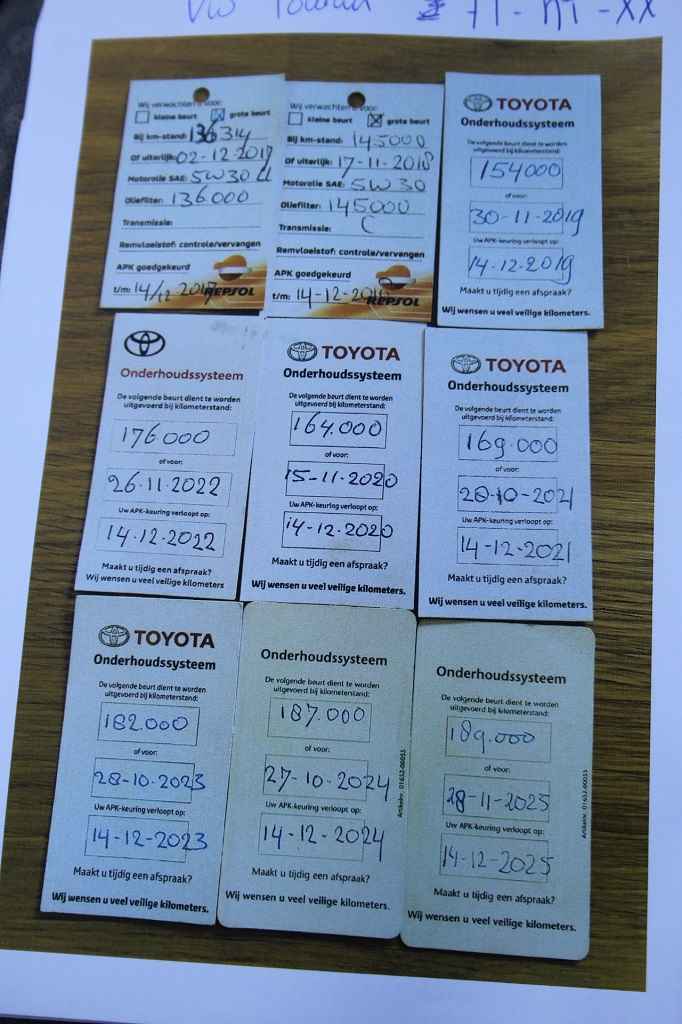 VW Touran 71-
Wij verwachten u voor:
kleine beurt grote beurt
Bij km-stand: 136314
Of uiterlijk: 02-12-2017
Motorolie SAE: 5W30 LL
Oliefilter: 136.000
Transmissie:
Remvloeistof: controle/vervangen
APK goedgekeurd
t/m: 14/12 2017
REPSOL
Wij verwachten u voor:
kleine beurt grote beurt
Bij km-stand: 145000
Of uiterlijk: 17-11-2018
Motorolie SAE: 5W30
Oliefilter: 145000
Transmissie:
Remvloeistof: controle/vervangen
APK goedgekeurd
t/m: 14-12-2018
REPSOL
TOYOTA
Onderhoudssysteem
De volgende beurt dient te worden
uitgevoerd bij kilometerstand:
154000
of voor:
30-11-2019
Uw APK-keuring verloopt op:
14-12-2019
Maakt u tijdig een afspraak?
Wij wensen u veel veilige kilometers.
Onderhoudssysteem
De volgende beurt dient te worden
uitgevoerd bij kilometerstand:
176000
of voor:
26-11-2022
Uw APK-keuring verloopt op:
14-12-2022
Maakt u tijdig een afspraak?
Wij wensen u veel veilige kilometers
TOYOTA
Onderhoudssysteem
De volgende beurt dient te worden
uitgevoerd bij kilometerstand:
164.000
of voor:
15-11-2020
Uw APK-keuring verloopt op:
14-12-2020
Maakt u tijdig een afspraak?
Wij wensen u veel veilige kilometers.
TOYOTA
Onderhoudssysteem
De volgende beurt dient te worden
uitgevoerd bij kilometerstand:
169.000
of voor:
28-10-2021
Uw APK-keuring verloopt op:
14-12-2021
Maakt u tijdig een afspraak?
Wij wensen u veel veilige kilometers.
TOYOTA
Onderhoudssysteem
De volgende beurt dient te worden
uitgevoerd bij kilometerstand:
182.000
of voor:
28-10-2023
Uw APK-keuring verloopt op:
14-12-2023
Maakt u tijdig een afspraak?
Wij wensen u veel veilige kilometers.
Onderhoudssysteem
De volgende beurt dient te worden
uitgevoerd bij kilometerstand:
187.000
of voor:
27-10-2024
Uw APK-keuring verloopt op:
14-12-2024
Maakt u tijdig een afspraak?
Wij wensen u veel veilige kilometers.
Artikelnr. 01652-06053
Onderhoudssysteem
De volgende beurt dient te worden
uitgevoerd bij kilometerstand:
189.000
of voor:
28-11-2025
Uw APK-keuring verloopt op:
14-12-2025
Maakt u tijdig een afspraak?
Wij wensen u veel veilige kilometers.
Artikelnr. 01652-06053